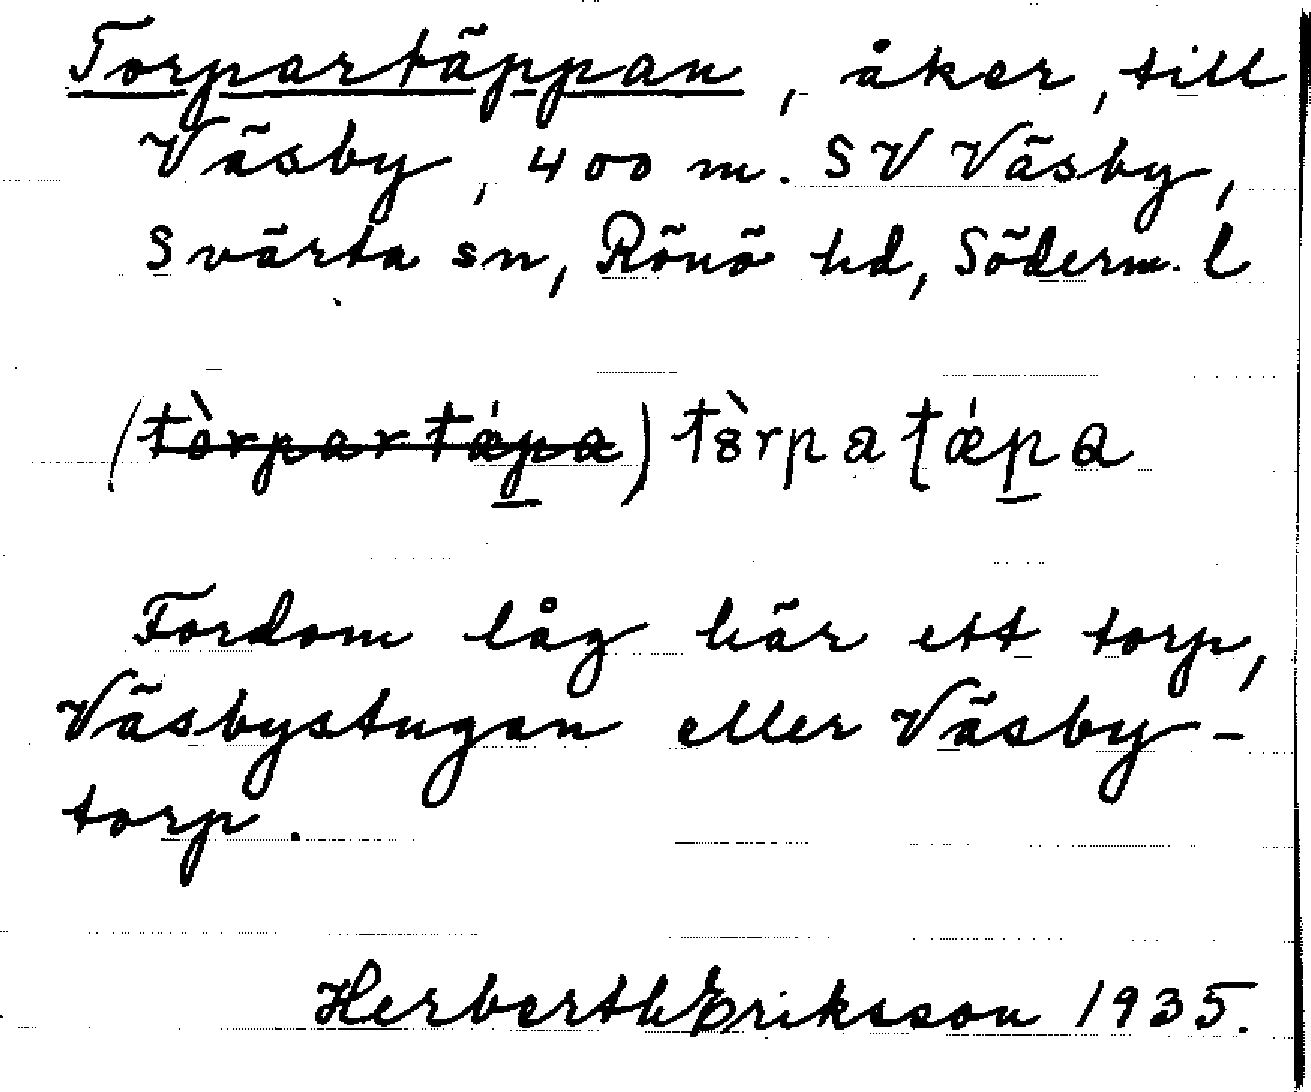 Torpartäppan, åker, till
Väsby, 400 m. SV Väsby,
Svärta sn, Rönö hd, Söderm. l
(tòrpartǽp̲a) tȣ̀rpaʈǽp̲a
Fordom låg här ett torp,
Väsbystugan eller Väsby-
torp.
Herberth Eriksson 1935.